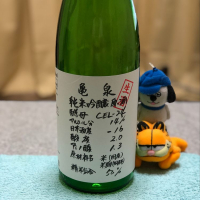 亀泉
生酒
純米吟醸原酒
酵母 CEL-24
アルコール分 14%
日本酒度 -16
酸度 2.0
アミノ酸 1.3
原料米
精米歩合 50%